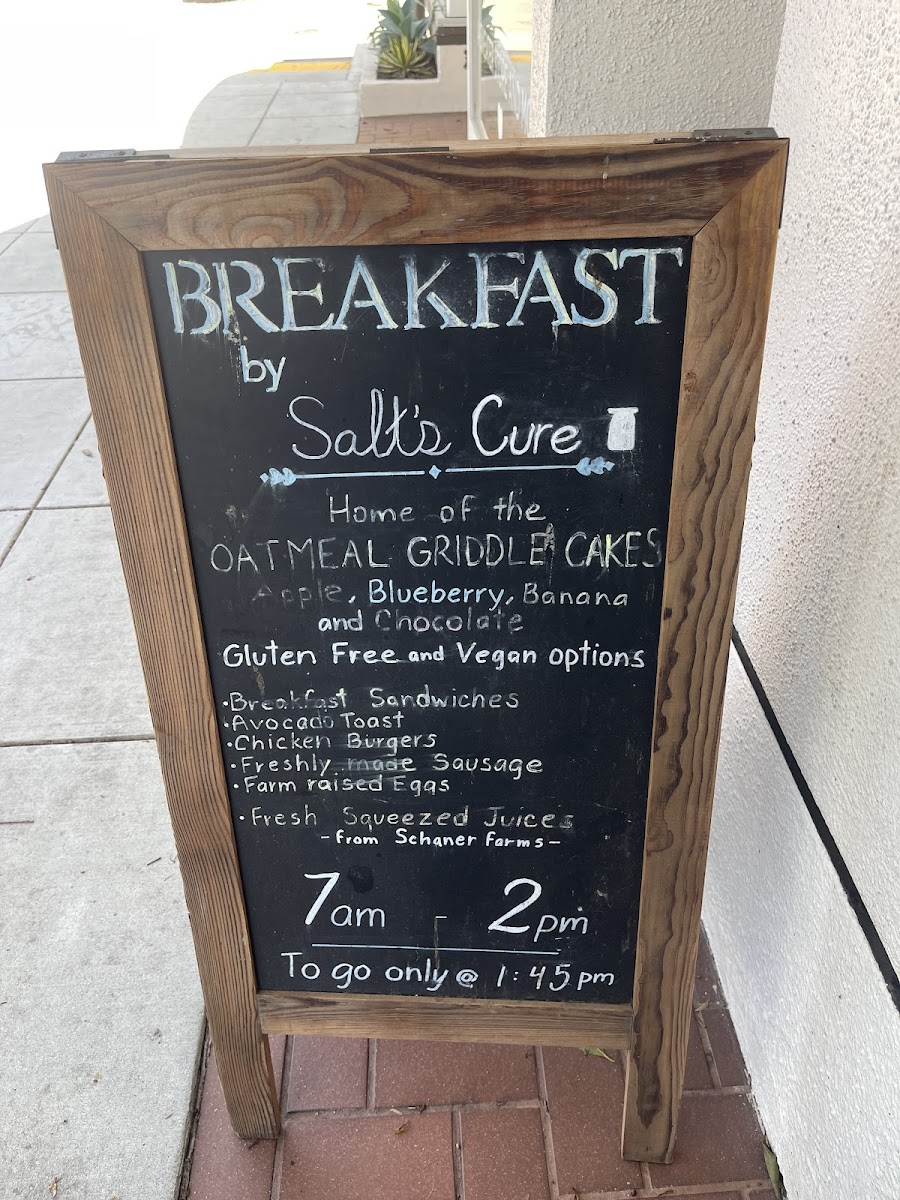 BREAKFAST
by
Salt's Cure
Home of the
OATMEAL GRIDDLE CAKES
Apple, Blueberry, Banana
and Chocolate
Gluten Free and Vegan options
•Breakfast Sandwiches
•Avocado Toast
•Chicken Burgers
•Freshly made Sausage
•Farm raised Eggs
•Fresh Squeezed Juices
-from Schaner Farms-
7am - 2pm
To go only @ 1:45 pm